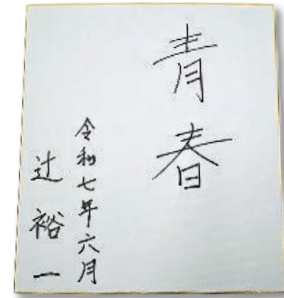 青春
令和七年六月
辻裕一